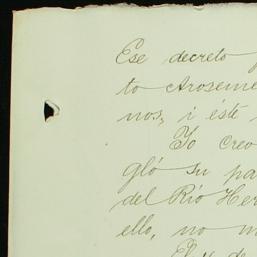 Ese decreto
to Aroseme
nos, i éste
Yo creo
gló su pa
del Río Her
ello, no m
El